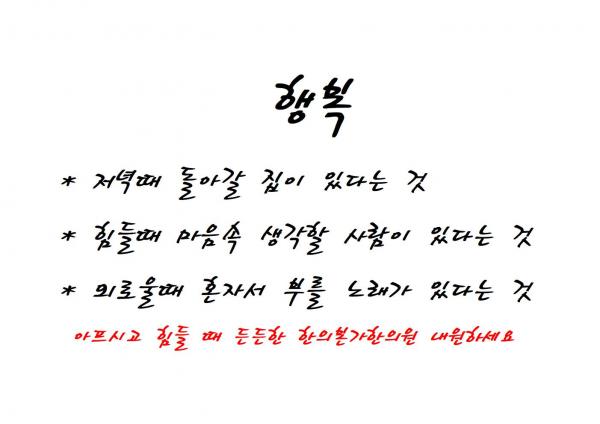 행복
* 저녁때 돌아갈 집이 있다는 것
* 힘들때 마음속 생각할 사람이 있다는 것
* 외로울때 혼자서 부를 노래가 있다는 것
아프시고 힘들 때 든든한 한의본가한의원 내원하세요